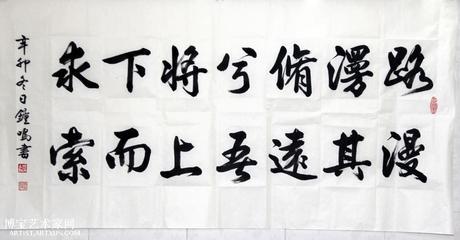 路漫
漫其
脩遠
兮吾
将上
下而
求索
辛卯冬日鐘鳴書
博宝艺术家网
ARTIST.ARTXUN.COM